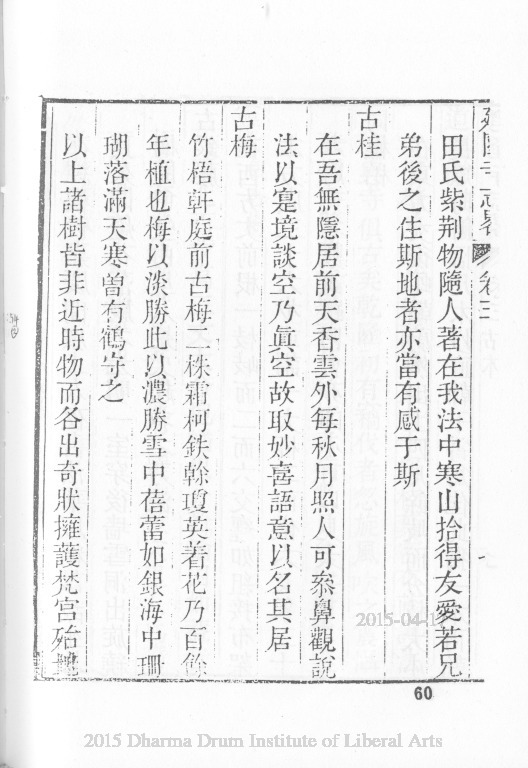 卷三
田氏紫荊物隨人著在我法中寒山拾得友愛若兄
弟後之住斯地者亦當有感于斯
古桂
在吾無隱居前天香雲外每秋月照人可叅鼻觀說
法以寔境談空乃眞空故取妙喜語意以名其居
古梅
竹梧軒庭前古梅二株霜柯鉄榦瓊英著花乃百餘
年植也梅以淡勝此以濃勝雪中蓓蕾如銀海中珊
瑚落滿天寒曽有鶴守之
以上諸樹皆非近時物而各出奇狀擁護梵宮殆
60
2015-04-1
2015 Dharma Drum Institute of Liberal Arts